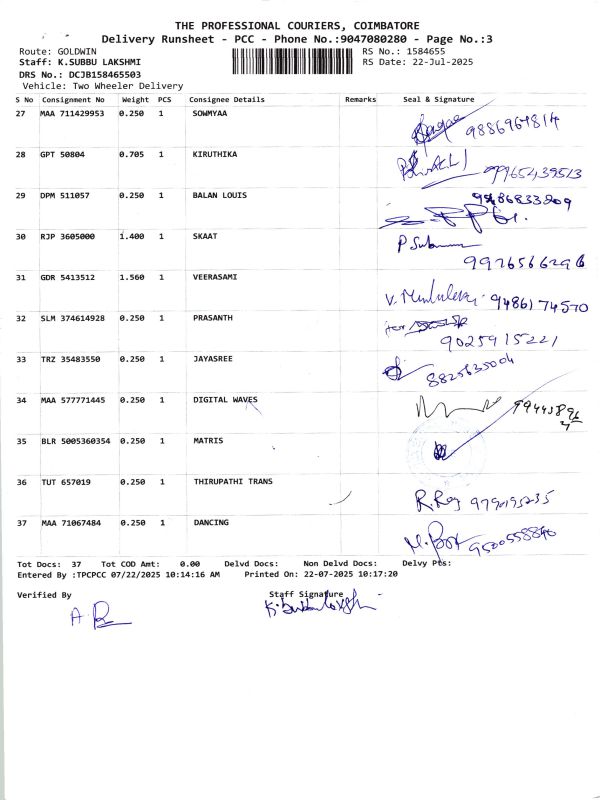 THE PROFESSIONAL COURIERS, COIMBATORE
Delivery Runsheet - PCC - Phone No.:9047080280 - Page No.:3
Route: GOLDWIN RS No.: 1584655
Staff: K.SUBBU LAKSHMI RS Date: 22-Jul-2025
DRS No.: DCJB158465503
Vehicle: Two Wheeler Delivery
S No Consignment No Weight PCS Consignee Details Remarks Seal & Signature
27 MAA 711429953 0.250 1 SOWMYAA 9886964814
28 GPT 50804 0.705 1 KIRUTHIKA 9965439513
29 DPM 511057 0.250 1 BALAN LOUIS
30 RJP 3605000 1.400 1 SKAAT
9976566296
31 GDR 5413512 1.560 1 VEERASAMI 9486174570
32 SLM 374614928 0.250 1 PRASANTH
9025915221
33 TRZ 35483550 0.250 1 JAYASREE 8825635004
34 MAA 577771445 0.250 1 DIGITAL WAVES
35 BLR 5005360354 0.250 1 MATRIS
36 TUT 657019 0.250 1 THIRUPATHI TRANS
37 MAA 71067484 0.250 1 DANCING
Tot Docs: 37 Tot COD Amt: 0.00 Delvd Docs: Non Delvd Docs: Delvy Pts:
Entered By :TPCPCC 07/22/2025 10:14:16 AM Printed On: 22-07-2025 10:17:20
Verified By Staff Signature